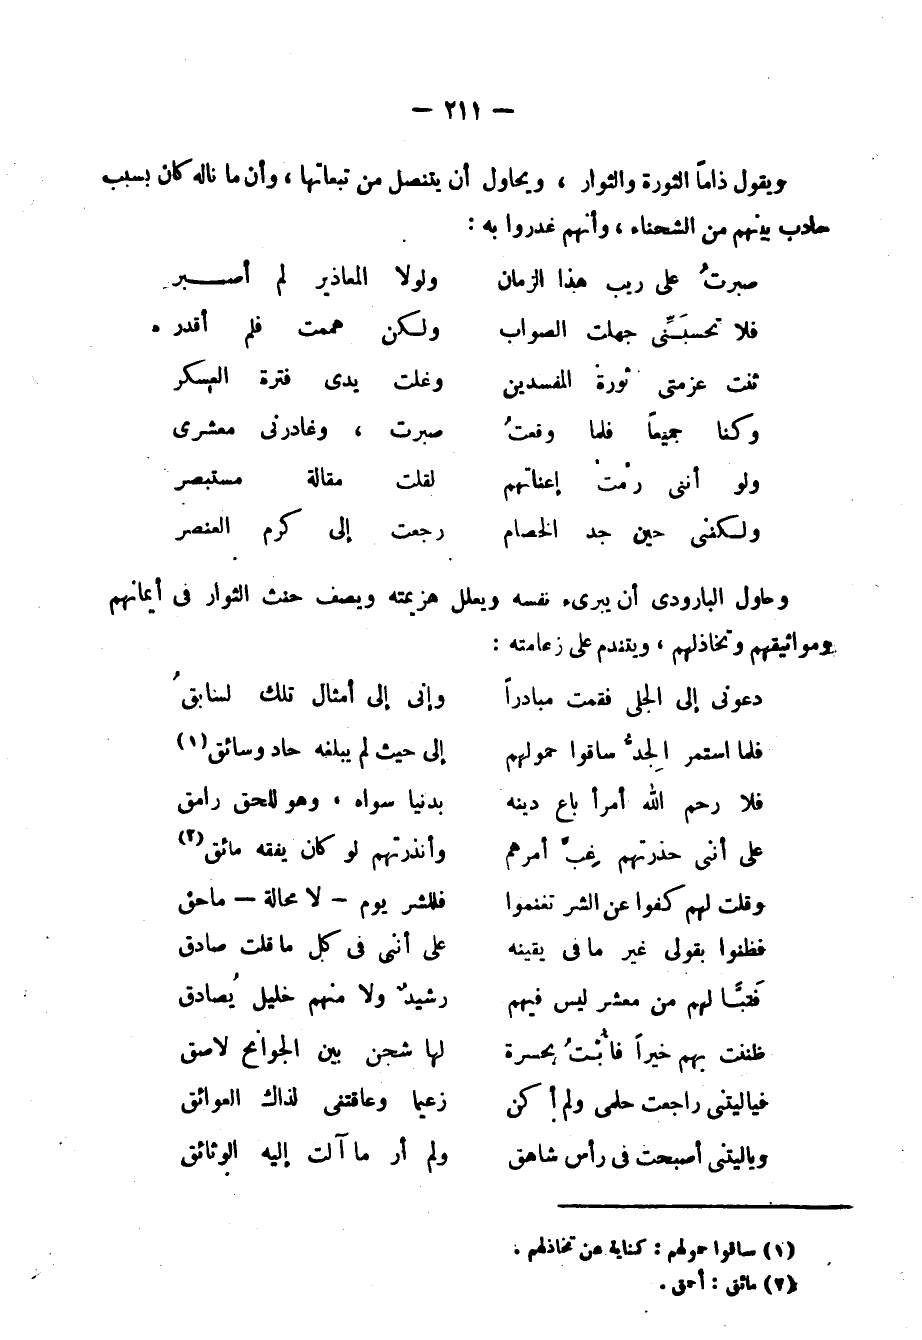 — ٢١١ —
ويقول ذاماً الثورة والثوار ، ويحاول أن يتنصل من تبعاتها ، وأن ما ناله كان بسبب
مادب بينهم من الشحناء ، وأنهم غدروا به :
صبرتُ على ريب هذا الزمان ولولا المعاذير لم أصـــبر
فلا تحسبَنِّى جهلت الصواب ولكن هممت فلم أقدر .
ثنت عزمتى ثورة المفسدين وغلت يدى فترة العسكر
وكنا جميعاً فلما وقعتُ صبرت ، وغادرنى معشرى
ولو أننى رمْتْ إعناتهم لقلت مقالة مستبصر
ولكننى حين جد الخصام رجعت إلى كرم العنصر
وحاول البارودى أن يبرىء نفسه ويعلل هزيمته ويصف حنث الثوار فى أيمانهم
ومواثيقهم وتخاذلهم ، ويتندم على زعامته :
دعونى إلى الجلى فقمت مبادراً وإنى إلى أمثال تلك لسابقُ
فلما استمر الجِدُّ ساقوا حمولهم إلى حيث لم يبلغه حاد وسائق(١)
فلا رحم الله أمرأ باع دينه بدنيا سواه ، وهو للحق رامق
على أننى حذرتهم غِبَّ أمرهم وأنذرتهم لو كان يفقه مائق(٢)
وقلت لهم كفوا عن الشر تغنموا فللشر يوم – لا محالة – ماحق
فظنوا بقولى غير ما فى يقينه على أننى فى كل ما قلت صادق
فَتبَّـا لهم من معشر ليس فيهم رشيدٌ ولا منهم خليل يُصادق
ظننت بهم خيراً فأُبْتُ بحسرة لها شجن بين الجوانح لاصق
فياليتنى راجعت حلمى ولم أكن زعيما وعاقتنى لذاك العوائق
وياليتنى أصبحت فى رأس شاهق ولم أر ما آلت إليه الوثائق
(١) ساقوا حمولهم : كناية عن تخاذلهم .
(٢) مائق : أحمق .